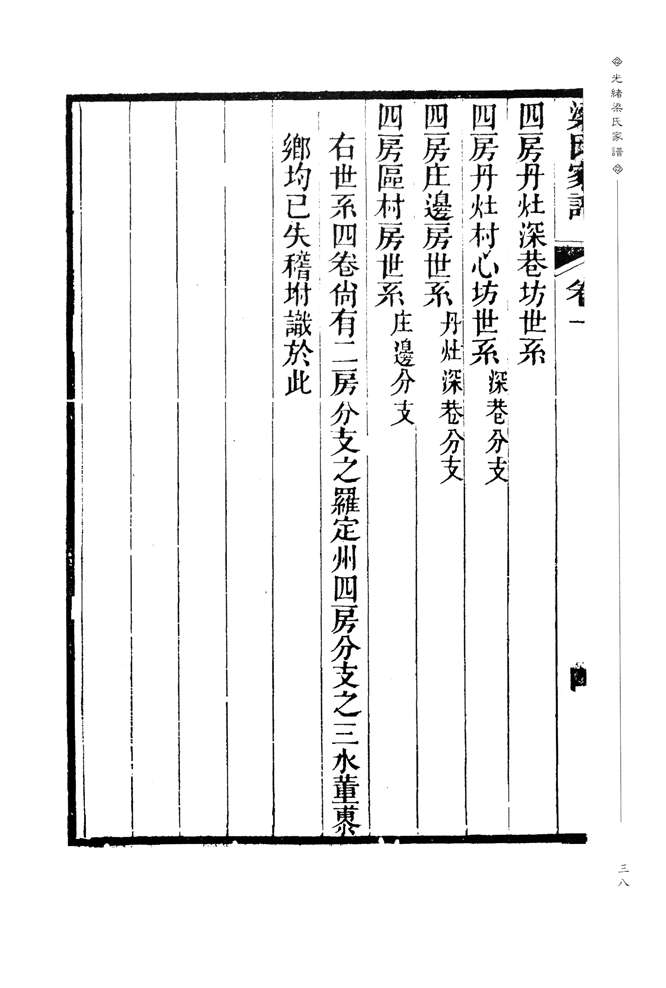 光緒梁氏家譜
三八
梁氏家譜 卷一
四房丹灶深巷坊世系
四房丹灶村心坊世系 深巷分支
四房庄邊房世系 丹灶深巷分支
四房區村房世系 庄邊分支
右世系四卷尙有二房分支之羅定州四房分支之三水董
鄉均已失稽坿識於此